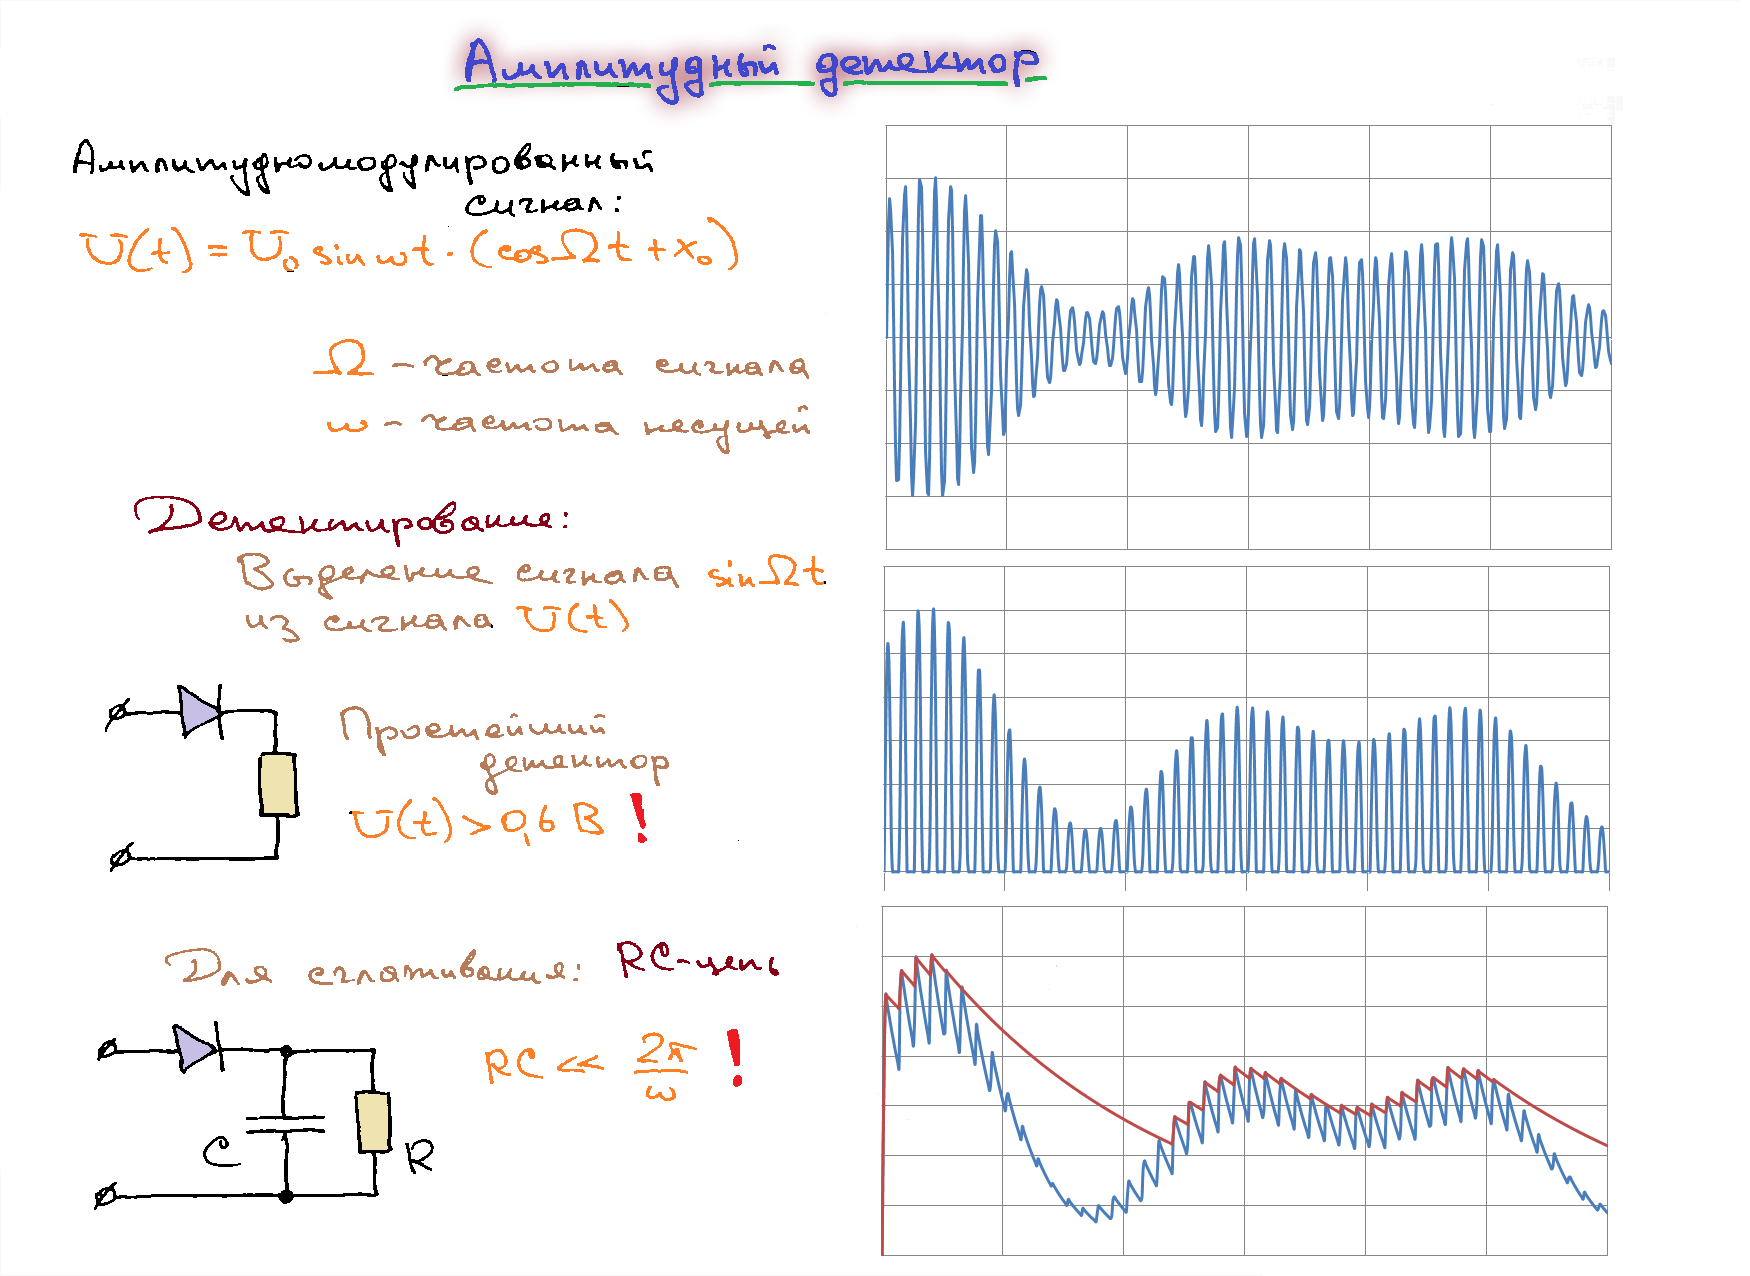 Амплитудный детектор
Амплитудномодулированный
сигнал:
U(t) = U₀ sin ωt · (cos Ωt + x₀)
Ω – частота сигнала
ω – частота несущей
Детектирование:
Выделение сигнала sin Ωt
из сигнала U(t)
Простейший
детектор
U(t) > 0,6 В !
Для сглаживания: RC-цепь
RC << 2π/ω !
C
R